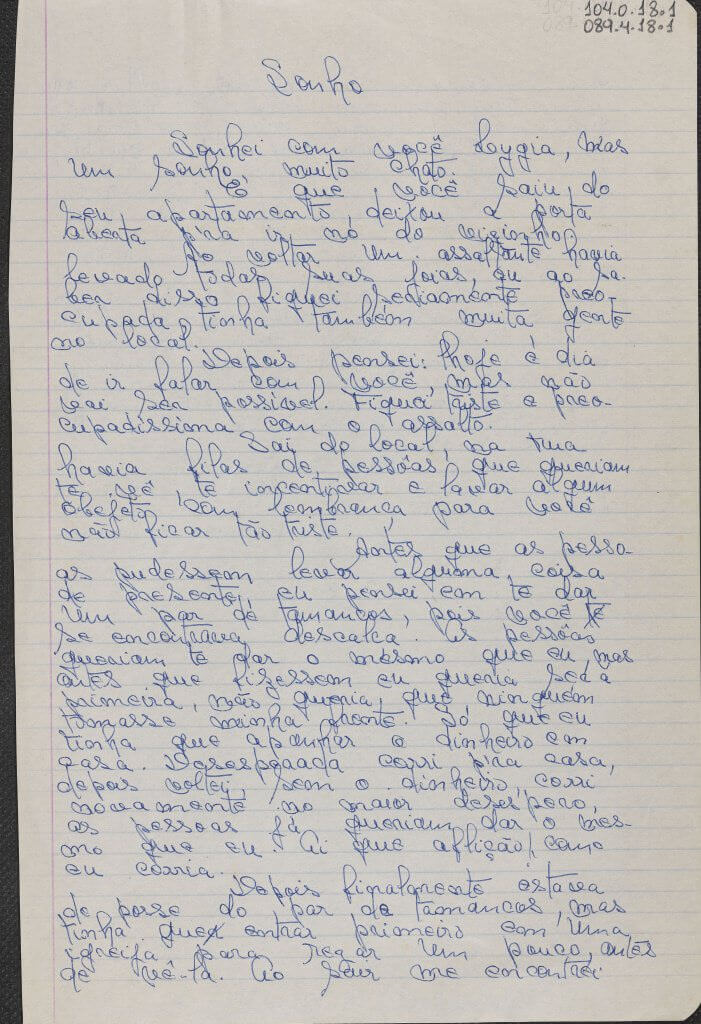 104.0.18.1
089.4.18.1
Sonho
Sonhei com você Lygia, mas
um sonho, muito chato.
É que você saiu do
seu apartamento, deixou a porta
aberta p'ra ir no do visinho.
Ao voltar um assaltante havia
levado todas suas joias, eu ao sa-
ber disso fiquei seriamente preo-
cupada, tinha também muita gente
no local.
Depois pensei: hoje é dia
de ir falar com você, mas não
vai ser possivel. Fiquei triste e preo-
cupadissima com o assalto.
Sai do local, na rua
havia filas de pessôas que queriam
te vê, te incentivar e levar algum
objeto com lembrança para você
não ficar tão triste.
Antes que as pesso-
as pudessem levar alguma coisa
de presente, eu pensei em te dar
um par de tamancos, pois você
se encontrava descalca. As pessôas
queriam te dar o mesmo que eu, mas
antes que fizessem eu queria ser a
primeira, não queria que ninguém
tomasse minha frente. Só que eu
tinha que apanhar o dinheiro em
casa. Desesperada corri p'ra casa,
depois voltei, sem o dinheiro, corri
novamente no maior desespero,
as pessoas já queriam dar o mes-
mo que eu. Ai que aflição! como
eu corria.
Depois finalmente estava
de posse do par de tamancos, mas
tinha que entrar primeiro em uma
igreija para rezar um pouco, antes
de vê-la. Ao sair me encontrei